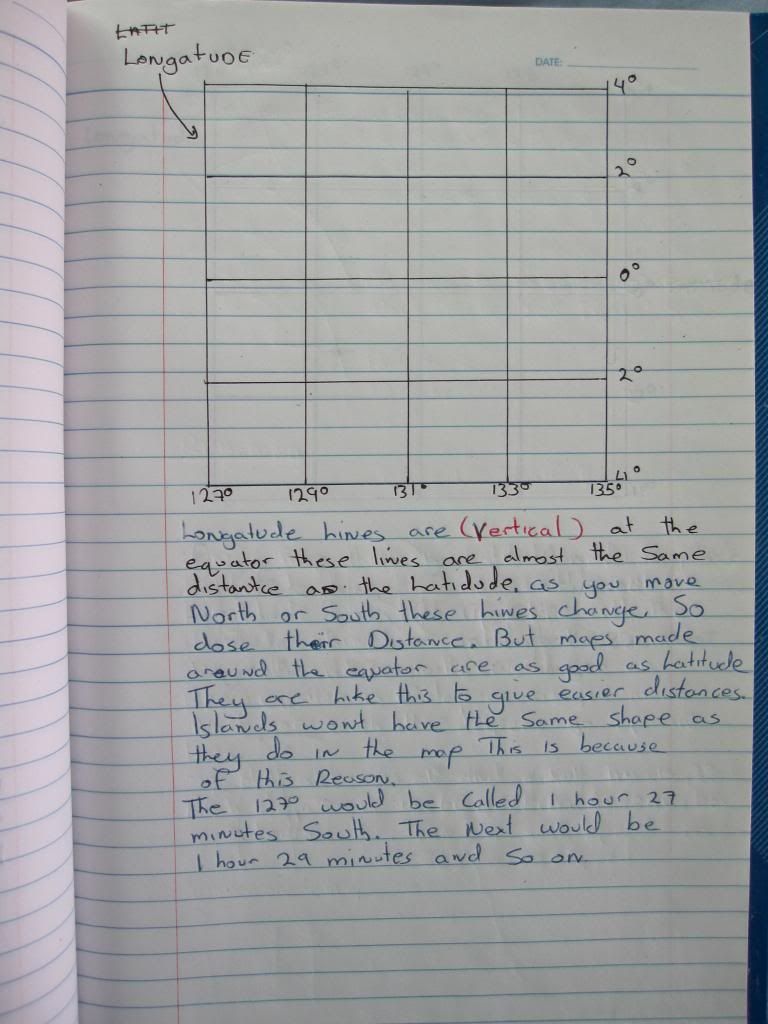 LATIT
LongatUDE
DATE:
4°
2°
0°
2°
4°
127° 129° 131° 133° 135°
Longatude Lines are (Vertical) at the
equator these lines are almost the Same
distantce as the Latidude, as you move
North or South these Lines change. So
dose their Distance. But maps made
around the equator are as good as Latitude
They are Like this to give easier distances.
Islands wont have the Same Shape as
they do in the map This is because
of this Reason.
The 127° would be Called 1 hour 27
minutes South. The Next would be
1 hour 29 minutes and So on.